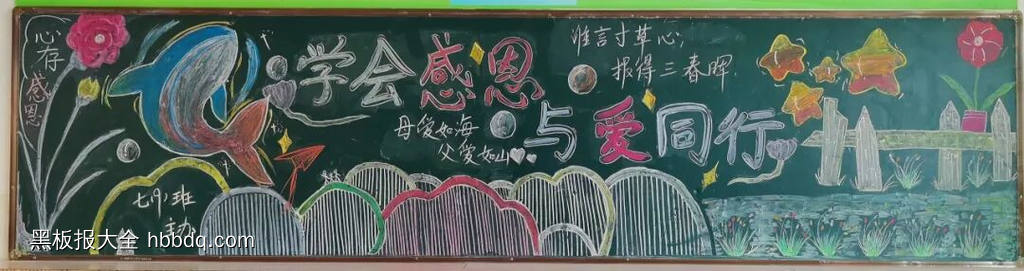 心存
感恩
学会感恩
与爱同行
谁言寸草心,
报得三春晖.
母爱如海
父爱如山
七(9)班
黑板报大全 hbbdq.com